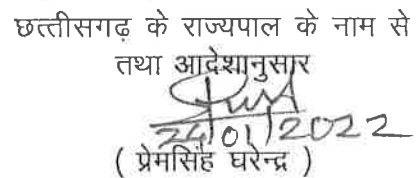 छत्तीसगढ़ के राज्यपाल के नाम से
तथा आदेशानुसार
24/01/2022
( प्रेमसिंह घरेन्द्र )